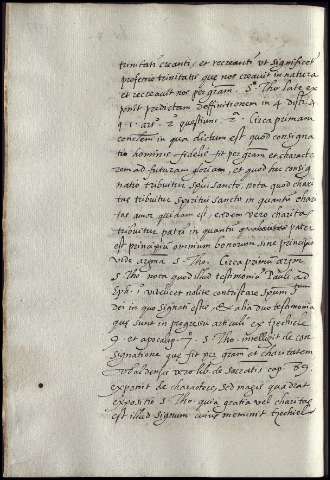 trinitati creanti, et recreanti ut significet
professio trinitatis que nos creavit in natura
et recreavit nos per gram. S. Tho. late ex
ponit predictam definitionem in 4 dist. 4
q. 1. art. 2 questiun. 2ª. Circa primam
conclem in qua dictum est quod consigna
tio hominis fidelis fit per gram et characte
rem ad futuram gloriam, et quod hec consig
natio tribuitur spui sancto, nota quod chari
tas tribuitur spiritui sancto in quantu chari
tas amor quidam est. eidem vero charitas
tribuitur patri in quantu pater
est principiu omnium bonorum sine principio
vide S. Tho. Circa primu
S. Tho. nota quod illud testimoniu Pauli ad
Eph. 1. videlicet nolite contristare spum
dei in quo signati estis et alia duo testimonia
que sunt in progressu articuli ex ezechiele
9. et apocalip. 7. S. Tho. intelligit de con
signatione que fit per gram et charitatem
Valdensis vero lib. de sacratis cap. 89.
exponit de charactere, sed magis quadrat
expositio S. Tho. quia gratia vel charitas
est illud signum cuius meminit Ezechiel